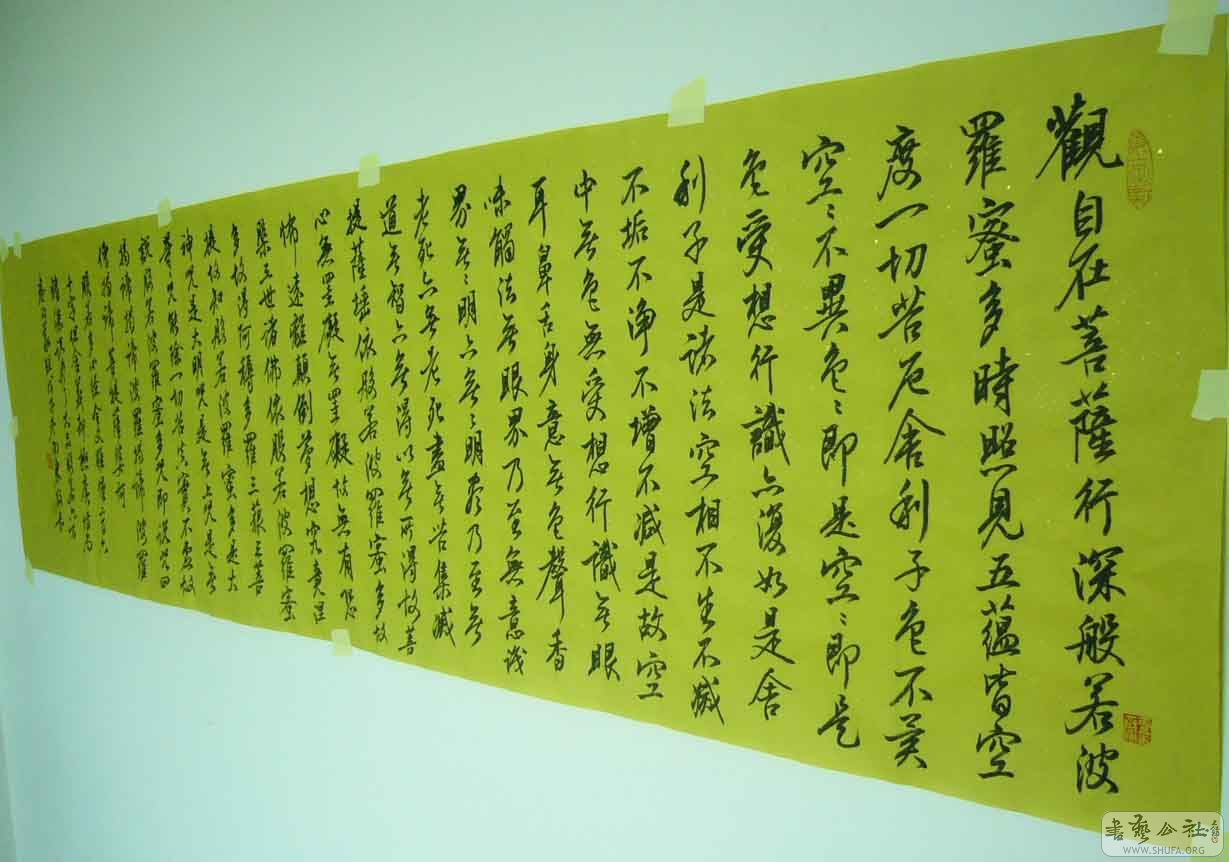 觀自在菩薩行深般若波
羅蜜多時照見五蘊皆空
度一切苦厄舍利子色不異
空〻不異色〻即是空〻即是
色受想行識亦復如是舍
利子是諸法空相不生不滅
不垢不淨不增不減是故空
中無色無受想行識無眼
耳鼻舌身意無色聲香
味觸法無眼界乃至無意識
界無〻明亦無〻明盡乃至無
老死亦無老死盡無苦集滅
道無智亦無得以無所得故菩
提薩埵依般若波羅蜜多故
心無罣礙無罣礙故無有恐
怖遠離顛倒夢想究竟涅
槃三世諸佛依般若波羅蜜
多故得阿耨多羅三藐三菩
提故知般若波羅蜜多是大
神咒是大明咒是無上咒是無
等咒能除一切苦真實不虛故
說般若波羅蜜多咒即說咒曰
揭諦揭諦波羅揭諦波羅
僧揭諦菩提薩婆訶
書藝公社
WWW.SHUFA.ORG